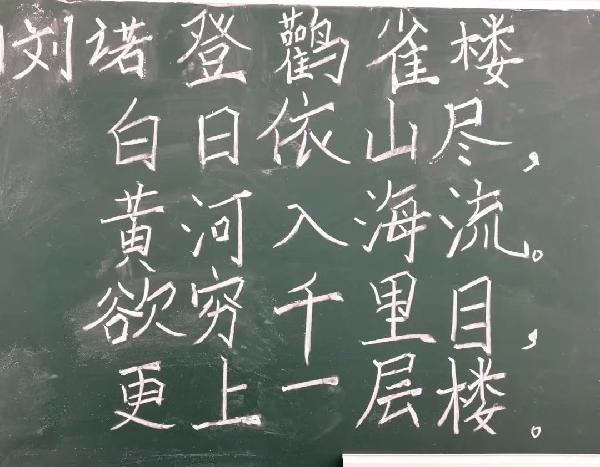 刘诺 登鹳雀楼
白日依山尽，
黄河入海流。
欲穷千里目，
更上一层楼。